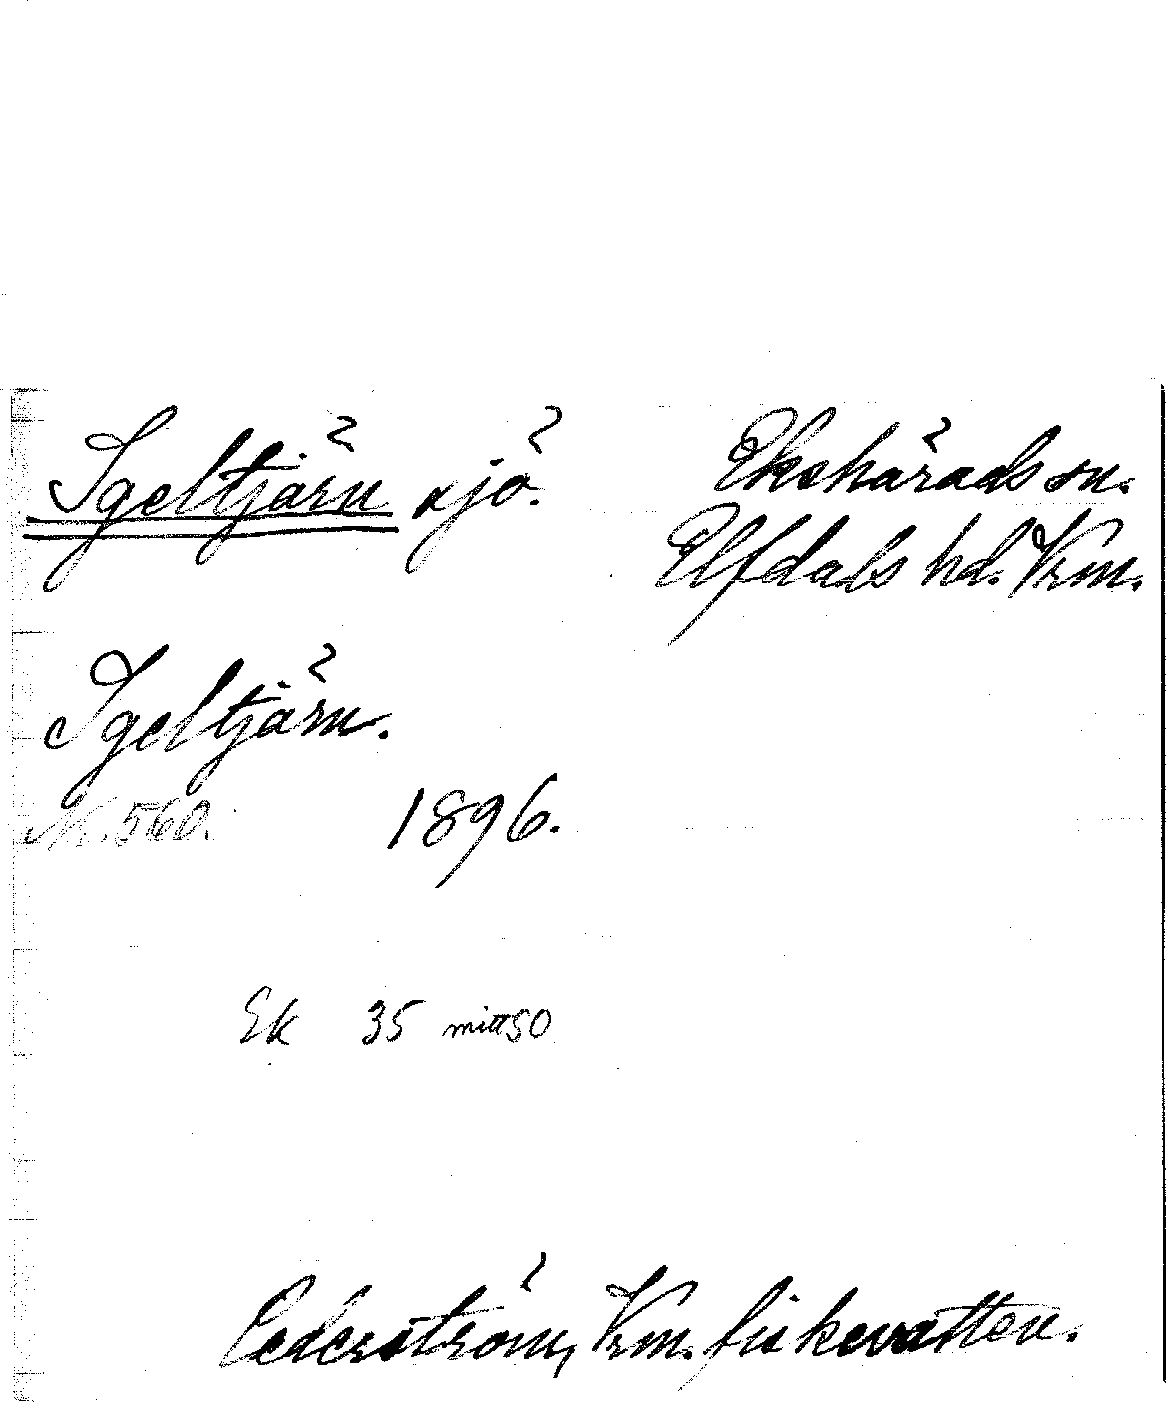 Igeltjärn sjö.
Ekshärads sn.
Elfdals hd. Vrm.
Igeltjärn.
Nr. 560. 1896.
Ek 35 mitt SO
Cederström, Vrm. fiskevatten.